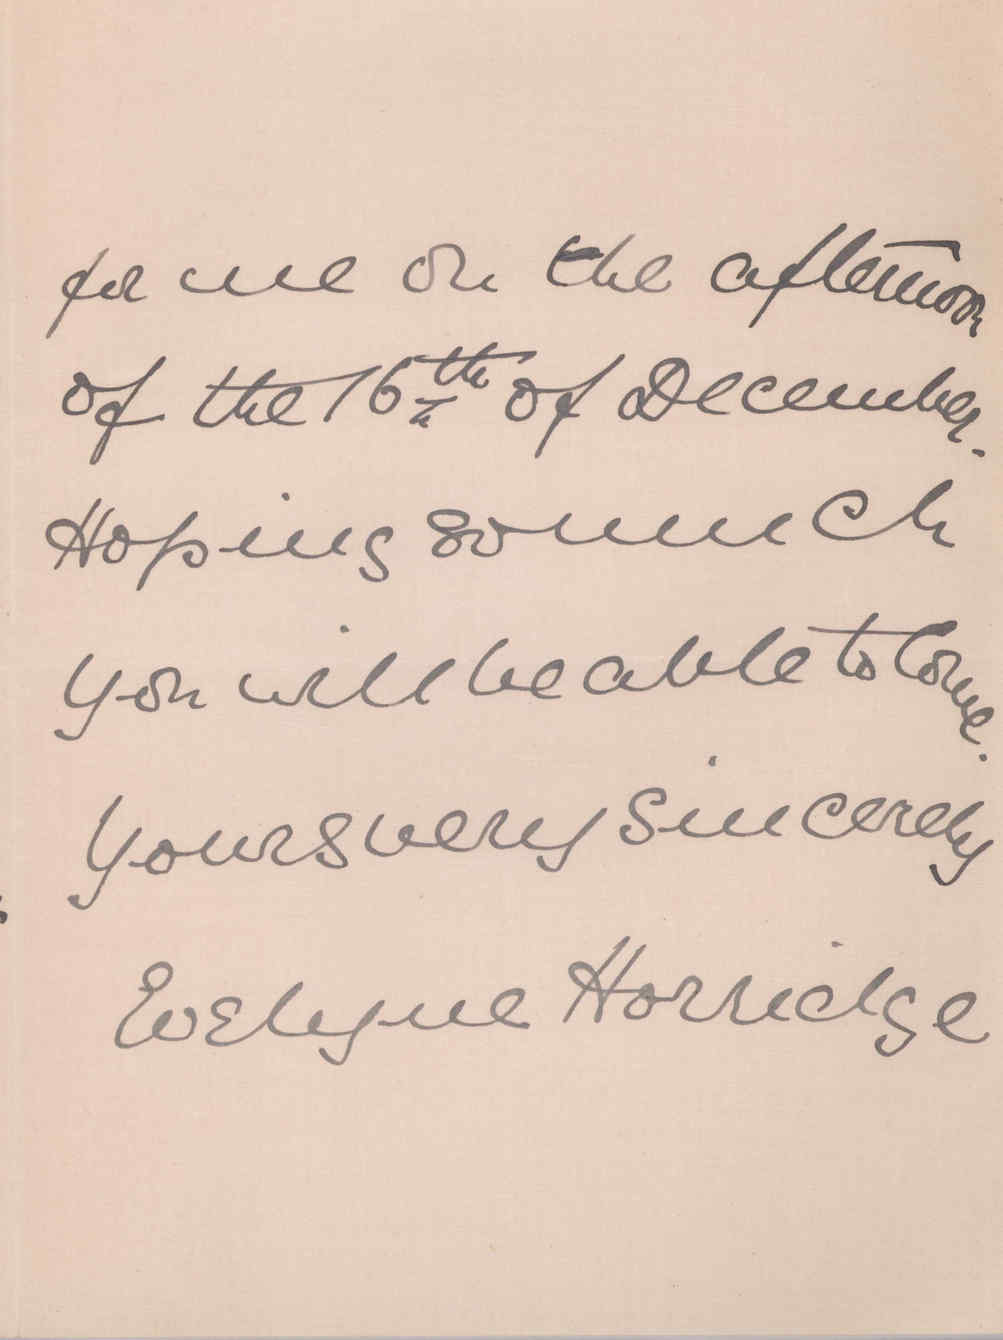 for me on the afternoon
of the 16th of December.
Hoping so much
you will be able to come.
Yours very sincerely
Evelyne Horridge